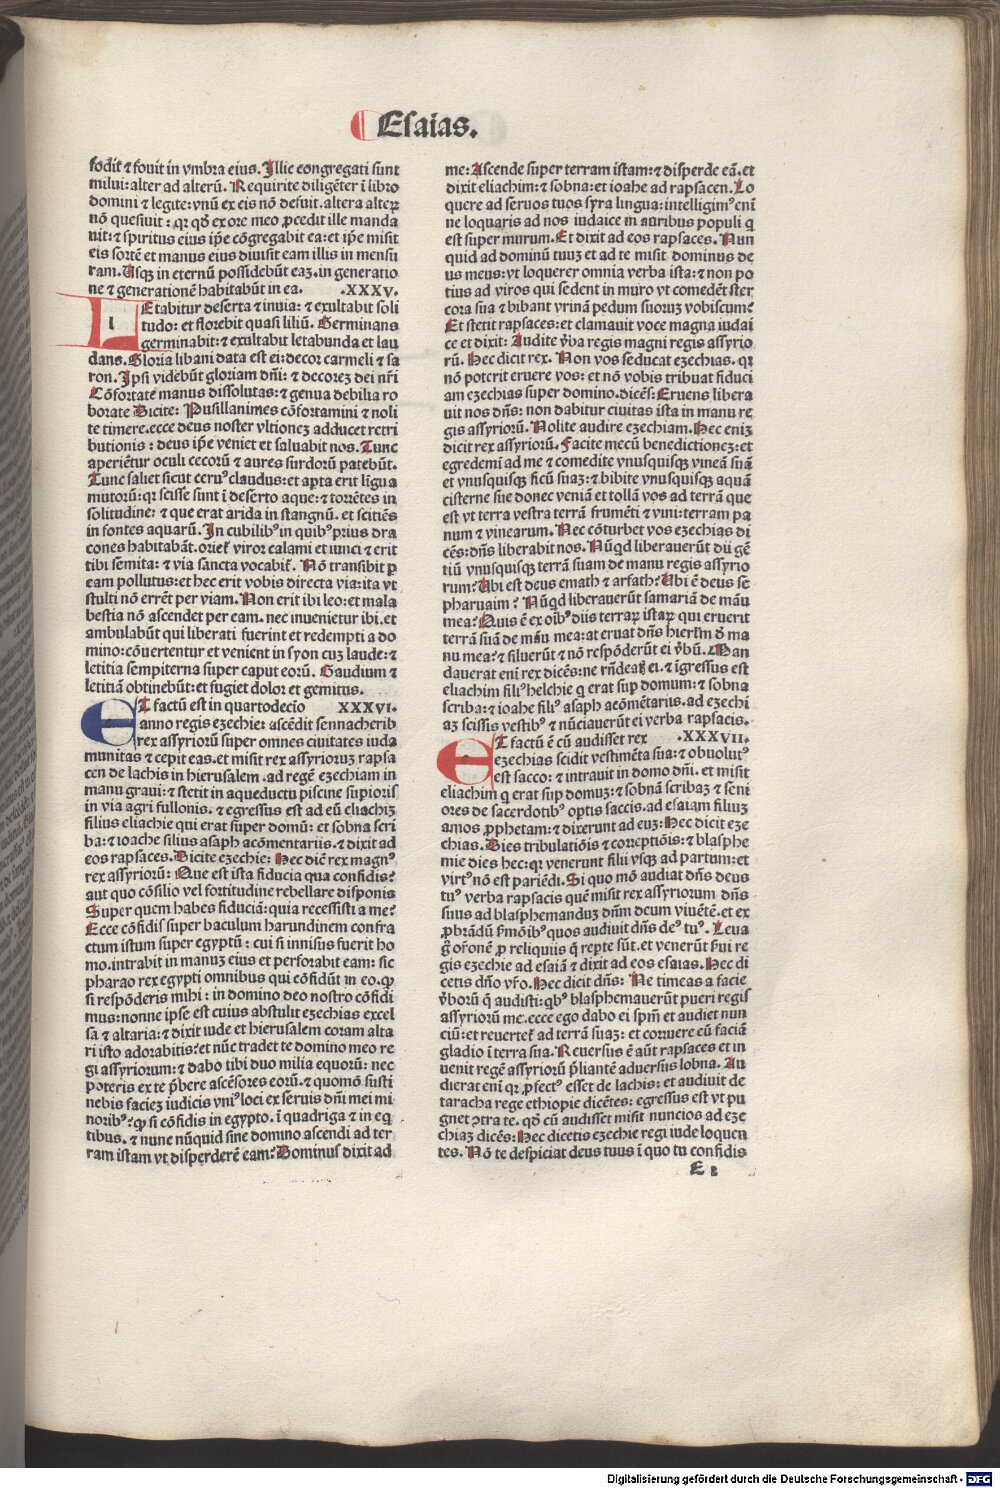 Esaias.
fodit̄ ⁊ fouit in vmbra eius. Illic congregati sunt
milui: alter ad alterū. Requirite diligēter ī libro
domini ⁊ legite: vnū ex eis nō defuit. altera alterꝝ
nō quesiuit: qꝛ qd̄ ex ore meo ꝓcedit ille manda
uit: ⁊ spiritus eius ip̄e cōgregabit ea: et ip̄e misit
eis sortē et manus eius diuisit eam illis in mensu
ram. Usqꝫ in eternū possidebūt eaꝫ. in generatio
ne ⁊ generationē habitabūt in ea. .XXXV.
LEtabitur deserta ⁊ inuia: ⁊ exultabit soli
tudo: et florebit quasi liliū. Germinans
germinabit: ⁊ exultabit letabunda et lau
dans. Gloria libani data est ei: decor carmeli ⁊ sa
ron. Ipsi videbūt gloriam dn̄i: ⁊ decoreꝫ dei nr̄i
Cōfortate manus dissolutas: ⁊ genua debilia ro
borate Dicite: Pusillanimes cōfortamini ⁊ noli
te timere. ecce deus noster vltioneꝫ adducet retri
butionis: deus ip̄e veniet et saluabit nos. Tunc
aperiētur oculi cecorū ⁊ aures surdorū patebūt.
Tunc saliet sicut ceruꝰ claudus: et apta erit līgua
mutorū: qꝛ scisse sunt ī deserto aque: ⁊ torrētes in
solitudine: ⁊ que erat arida in stangnū. et scitiēs
in fontes aquarū. In cubilibꝰ in quibꝰ prius dra
cones habitabāt. oriet᷑ viror calami et iunci ⁊ erit
tibi semita: ⁊ via sancta vocabit᷑. Nō transibit ꝑ
eam pollutus: et hec erit vobis directa via: ita vt
stulti nō errēt per viam. Non erit ibi leo: et mala
bestia nō ascendet per eam. nec inuenietur ibi. et
ambulabūt qui liberati fuerint et redempti a do
mino: cōuertentur et venient in syon cuꝫ laude: ⁊
letitia sempiterna super caput eorū. Gaudium ⁊
letitiā obtinebūt: et fugiet dolor et gemitus.
ET factū est in quartodecio XXXVI.
anno regis ezechie: ascēdit sennacherib
rex assyriorū super omnes ciuitates iuda
munitas ⁊ cepit eas. et misit rex assyrioruꝫ rapsa
cen de lachis in hierusalem. ad regē ezechiam in
manu graui: ⁊ stetit in aqueductu piscine supioris
in via agri fullonis. ⁊ egressus est ad eū eliachiꝫ
filius eliachie qui erat super domū: et sobna scri
ba: ⁊ ioache filius asaph acōmentariis. ⁊ dixit ad
eos rapsaces. Dicite ezechie: Hec dic̄ rex magnꝰ
rex assyriorū: Que est ista fiducia qua confidis?
aut quo cōsilio vel fortitudine rebellare disponis
Super quem habes fiduciā: quia recessisti a me?
Ecce cōfidis super baculum harundinem confra
ctum istum super egyptū: cui si innisus fuerit ho
mo. intrabit in manuꝫ eius et perforabit eam: sic
pharao rex egypti omnibus qui cōfidūt in eo. ꝙ
si respōderis mihi: in domino deo nostro cōfidi
mus: nonne ipse est cuius abstulit ezechias excel
sa ⁊ altaria: ⁊ dixit iude et hierusalem coram alta
ri isto adorabitis? et nūc tradet te domino meo re
gi assyriorum: ⁊ dabo tibi duo milia equorū: nec
poteris ex te p̄bere ascēsores eorū. ⁊ quomō susti
nebis facieꝫ iudicis vniꝰ loci ex seruis dn̄i mei mi
noribꝰ? ꝙ si cōfidis in egypto. ī quadriga ⁊ in eq̄
tibus. ⁊ nunc nūquid sine domino ascendi ad ter
ram istam vt disperderē eam? Dominus dixit ad
me: Ascende super terram istam: ⁊ disperde eā. et
dixit eliachim: ⁊ sobna: et ioahe ad rapsacen. Lo
quere ad seruos tuos syra lingua: intelligimꝰ enī
ne loquaris ad nos iudaice in auribus populi q̄
est super murum. Et dixit ad eos rapsaces. Nun
quid ad dominū tuuꝫ et ad te misit dominus de
us meus: vt loquerer omnia verba ista: ⁊ non po
tius ad viros qui sedent in muro vt comedēt ster
cora sua ⁊ bibant vrinā pedum suoruꝫ vobiscum?
Et stetit rapsaces: et clamauit voce magna iudai
ce et dixit: Audite v̄ba regis magni regis assyrio
rū. Hec dicit rex. Non vos seducat ezechias. qꝛ
nō poterit eruere vos: et nō vobis tribuat fiduci
am ezechias super domino. dicēs: Eruens libera
uit nos dn̄s: non dabitur ciuitas ista in manu re
gis assyriorū. Nolite audire ezechiam. Hec eniꝫ
dicit rex assyriorū. Facite mecū benedictioneꝫ: et
egredemī ad me ⁊ comedite vnusquisqꝫ vineā suā
et vnusquisqꝫ ficū suaꝫ: ⁊ bibite vnusquisqꝫ aquā
cisterne sue donec veniā et tollā vos ad terrā que
est vt terra vestra terrā frumēti ⁊ vini: terram pa
num ⁊ vinearum. Nec cōturbet vos ezechias di
cēs: dn̄s liberabit nos. Nūqd liberauerūt dii gē
tiū vnusquisqꝫ terrā suam de manu regis assyrio
rum? Ubi est deus emath ⁊ arfath? Ubi ē deus se
pharuaim? Nūqd liberauerūt samariā de māu
mea? Quis ē ex oībꝰ diis terraꝝ istaꝝ qui eruerit
terrā suā de manu mea: at eruat dn̄s hierlm̄ d̄ ma
nu mea? ⁊ siluerūt ⁊ nō respōderūt ei v̄bū. Man
dauerat enī rex dicēs: ne rn̄deatꝭ ei. ⁊ īgressus est
eliachim filiꝰ helchie q̄ erat sup̄ domum: ⁊ sobna
scriba: ⁊ ioahe filiꝰ asaph acōmētariis. ad ezechi
aꝫ scissis vestibꝰ ⁊ nūciauerūt ei verba rapsacis.
ET factū ē cū audisset rex .XXXVII.
ezechias scidit vestimēta sua: ⁊ obuolutꝰ
est sacco: ⁊ intrauit in domo dn̄i. et misit
eliachim q̄ erat sup̄ domuꝫ: ⁊ sobnā scribaꝫ ⁊ seni
ores de sacerdotibꝰ optis saccis. ad esaiam filiuꝫ
amos ꝓphetam: ⁊ dixerunt ad euꝫ: Hec dicit eze
chias. Dies tribulatiōis ⁊ correptiōis: ⁊ blasphe
mie dies hec: qꝛ venerunt filii vsqꝫ ad partum: et
virtꝰ nō est pariēdi. Si quo mō audiat dn̄s deus
tuꝰ verba rapsacis quē misit rex assyriorum dn̄s
suus ad blasphemanduꝫ dn̄m deum viuētē. et ex
ꝓbrādū s̄mōibꝰ quos audiuit dn̄s deꝰ tuꝰ. Leua
g̊ or̄onē ꝓ reliquiis q̄ rep̄te sūt. et venerūt s̄ui re
gis ezechie ad esaiā ⁊ dixit ad eos esaias. Hec di
cetis dn̄o vr̄o. Hec dicit dn̄s: Ne timeas a facie
v̄borū q̄ audisti: qbꝰ blasphemauerūt pueri regis
assyriorū me. ecce ego dabo ei spm̄ et audiet nun
ciū: et reuertet᷑ ad terrā suaꝫ: et corruere eū faciā
gladio ī terra sua. Reuersus ē aūt rapsaces et in
uenit regē assyriorū p̄liantē aduersus lobna. Au
dierat enī qꝛ ꝓfectꝰ esset de lachis: et audiuit de
taracha rege ethiopie dicētes: egressus est vt pu
gnet ↄtra te. qd̄ cū audisset misit nuncios ad eze
chiaꝫ dicēs: Hec dicetis ezechie regi iude loquen
tes. Nō te despiciat deus tuus ī quo tu confidis
E 2
Digitalisierung gefördert durch die Deutsche Forschungsgemeinschaft - DFG